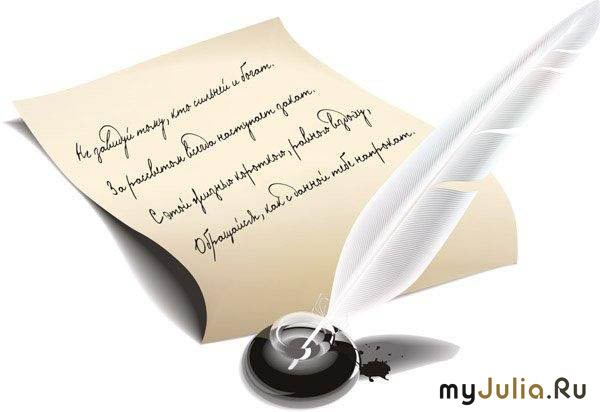 Не завидуй тому, кто сильней и богат.
За рассветом всегда наступает закат.
С этой жизнью короткою, равною вздоху,
Обращайся, как с данной тебе напрокат.
myJulia.Ru